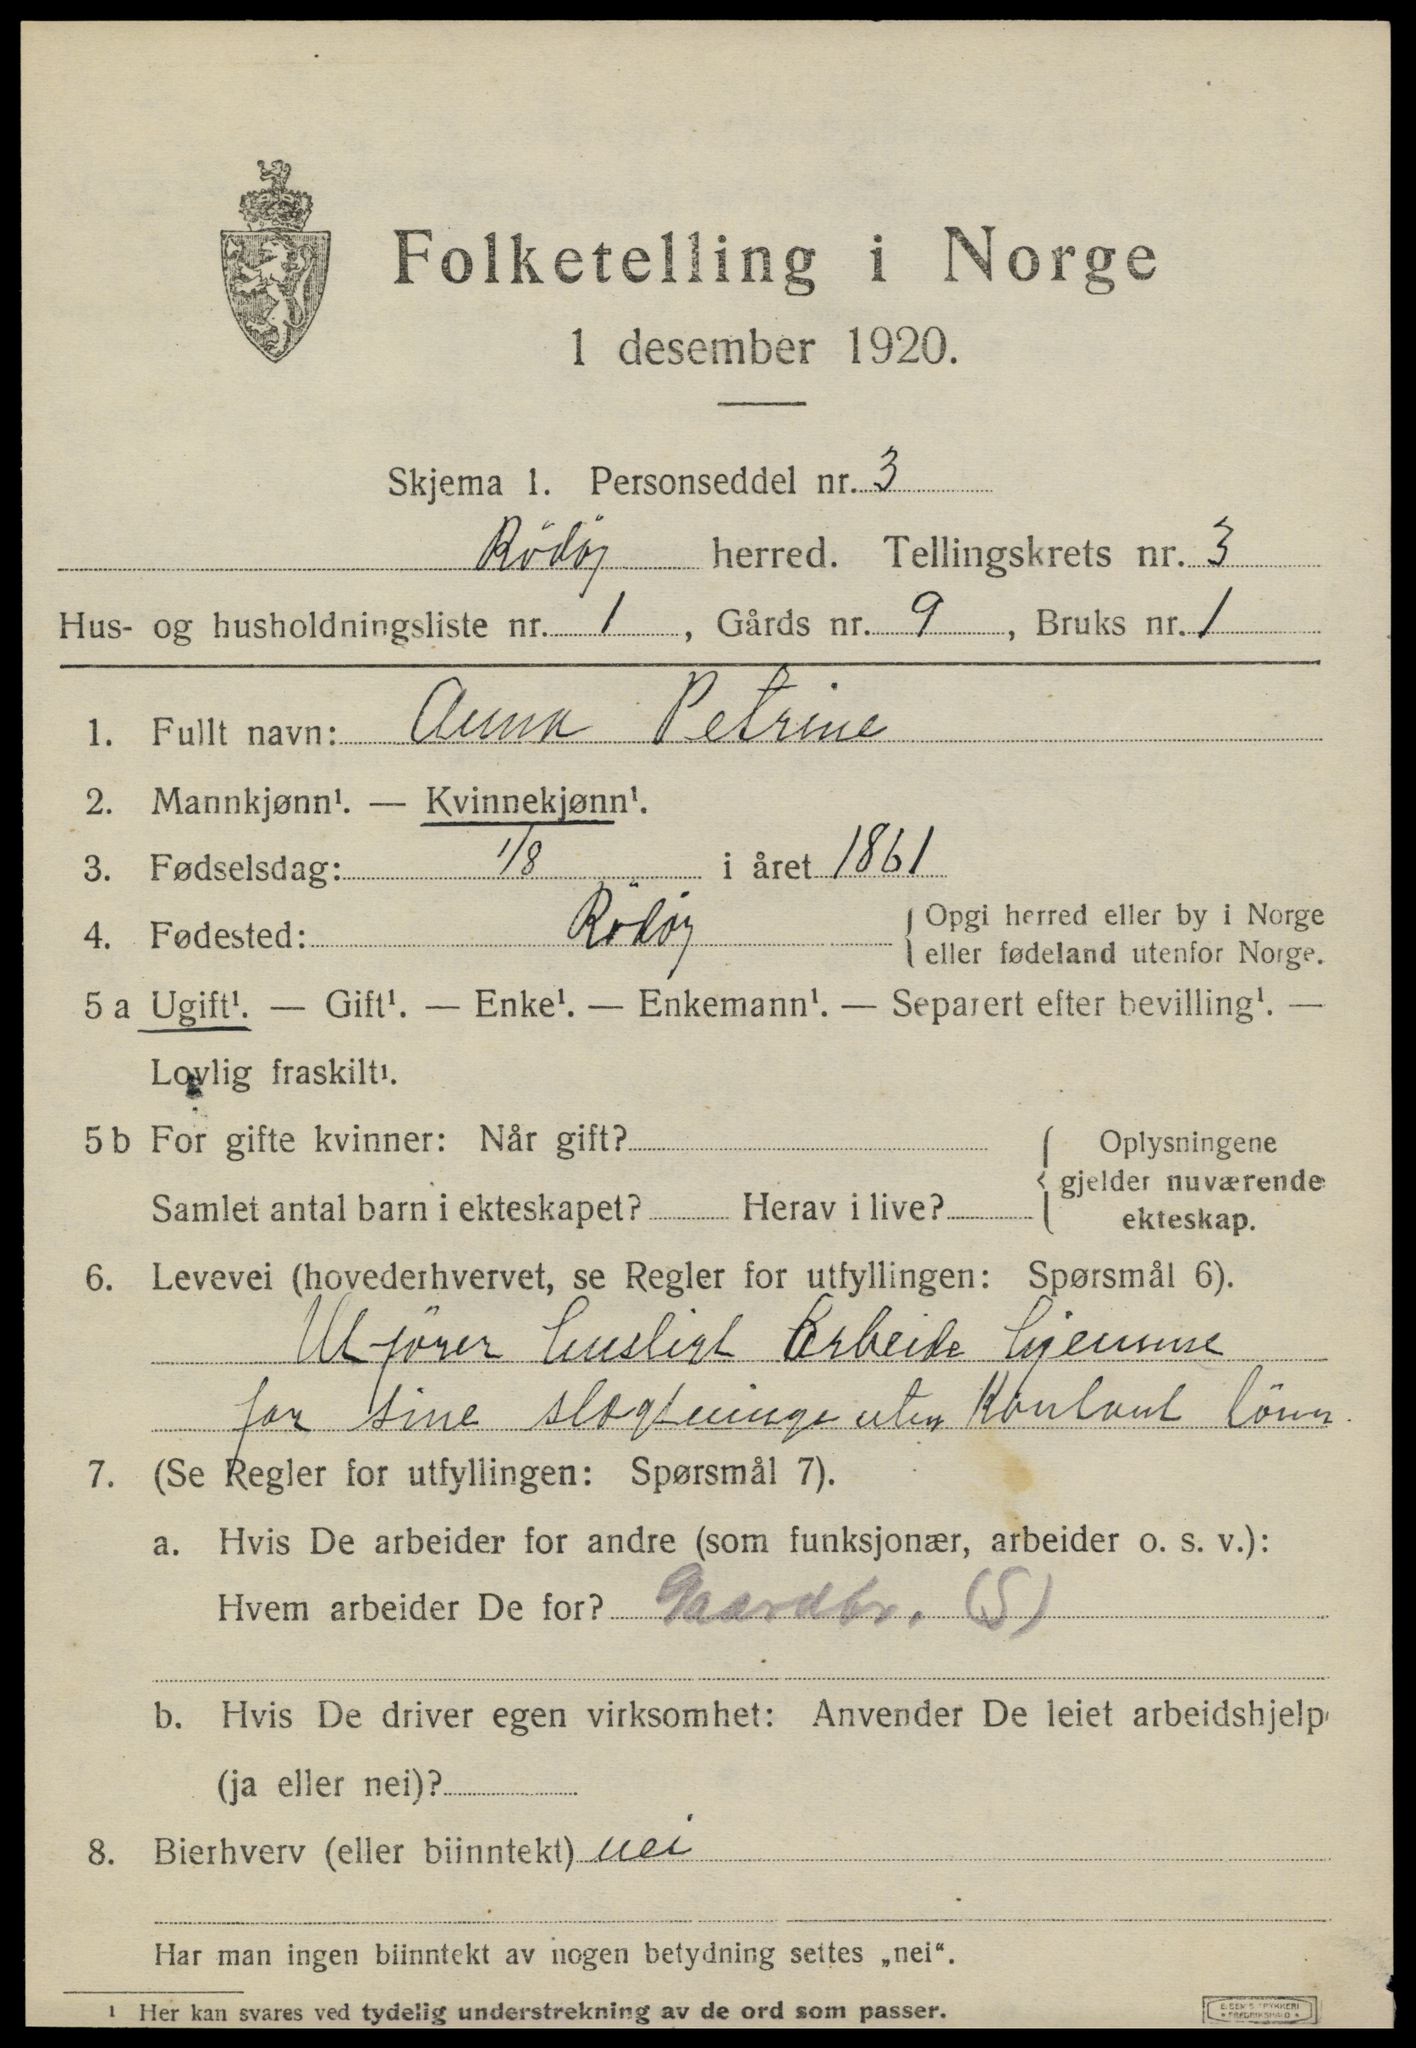 Folketelling i Norge
1 desember 1920.
Skjema 1. Personseddel nr. 3
Rödöy herred. Tellingskrets nr. 3
Hus- og husholdningsliste nr. 1, Gårds nr. 9, Bruks nr. 1
1. Fullt navn: Anna Petrine
2. Mannkjønn¹. — Kvinnekjønn¹.
3. Fødselsdag: 1/8 i året 1861
4. Fødested: Rödöy { Opgi herred eller by i Norge
eller fødeland utenfor Norge.
5 a Ugift¹. — Gift¹. — Enke¹. — Enkemann¹. — Separert efter bevilling¹. —
Lovlig fraskilt¹.
5 b For gifte kvinner: Når gift? { Oplysningene
gjelder nuværende
Samlet antal barn i ekteskapet? Herav i live? ekteskap.
6. Levevei (hovederhvervet, se Regler for utfyllingen: Spørsmål 6).
Utfører husligt Arbeide hjemme
for sine slægtninge uten Kontant lönn
7. (Se Regler for utfyllingen: Spørsmål 7).
a. Hvis De arbeider for andre (som funksjonær, arbeider o. s. v.):
Hvem arbeider De for? Gaardbr. (S)
b. Hvis De driver egen virksomhet: Anvender De leiet arbeidshjelp
(ja eller nei)?
8. Bierhverv (eller biinntekt) nei
Har man ingen biinntekt av nogen betydning settes „nei“.
¹ Her kan svares ved tydelig understrekning av de ord som passer.
FREDRIKSHALD